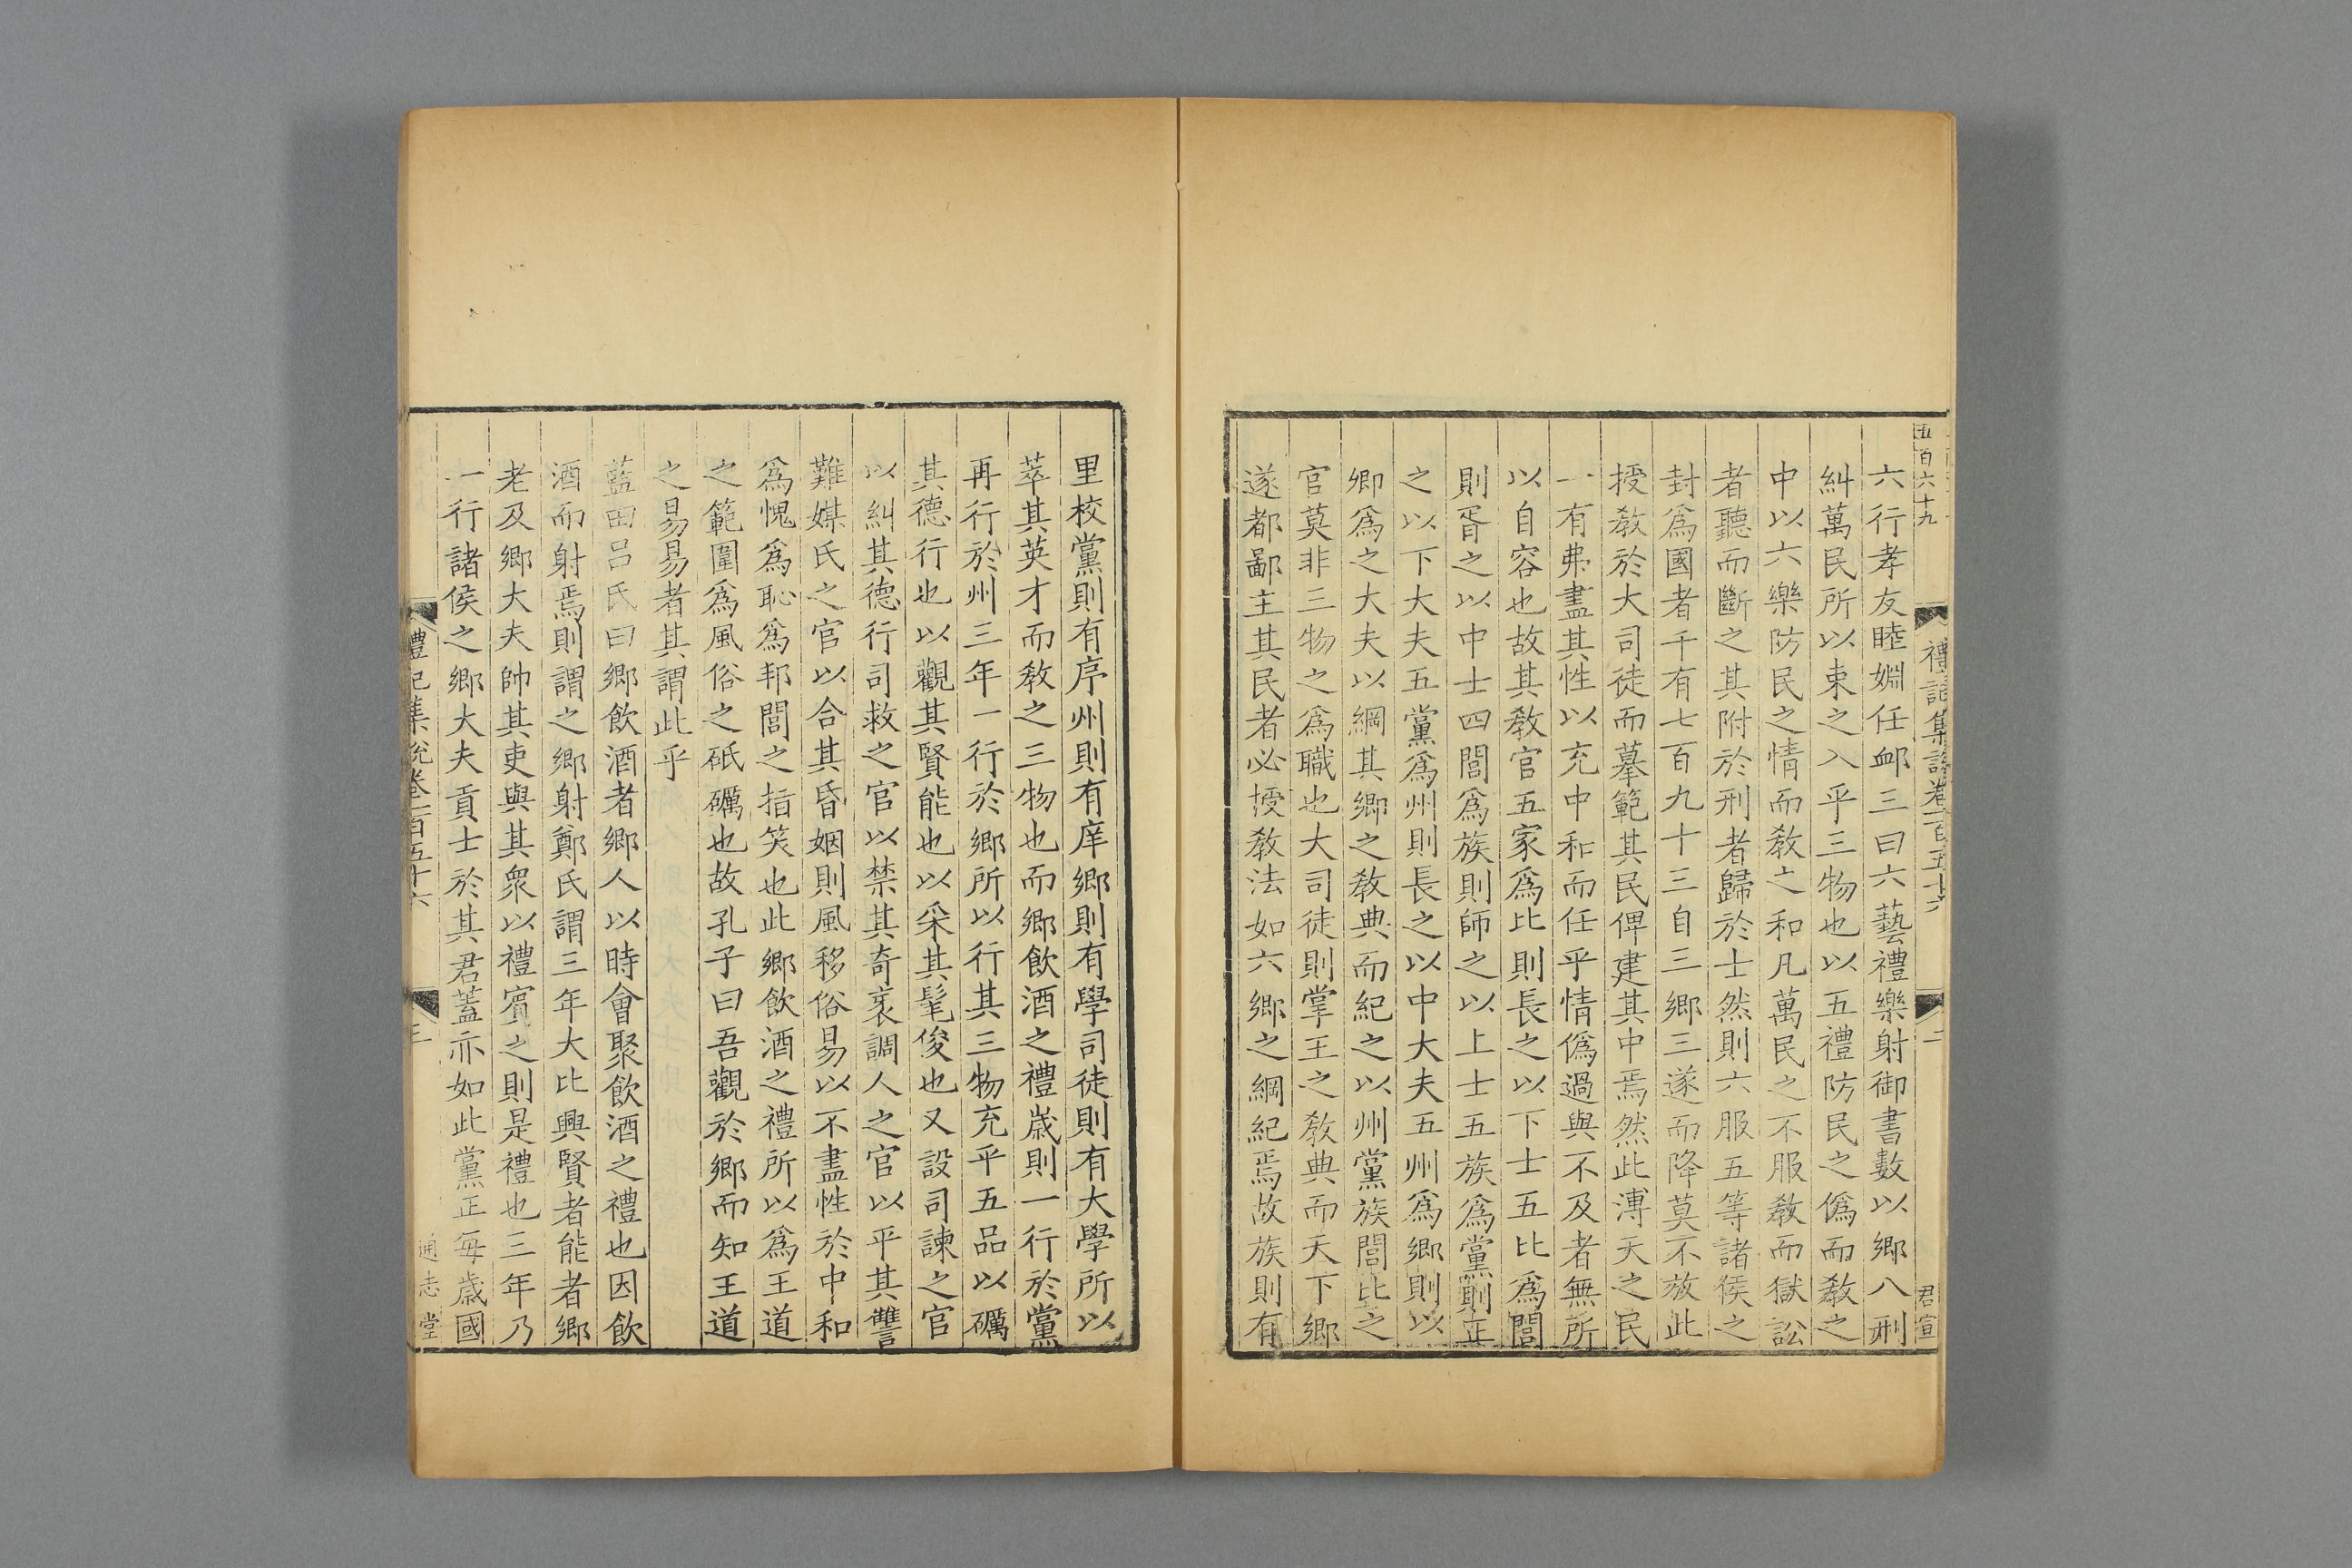 五百六十九
禮記集說卷一百五十六
二
君宣
六行孝友睦婣任䘏三曰六藝禮樂射御書數以鄉八刑
糾萬民所以束之入乎三物也以五禮防民之僞而教之
中以六樂防民之情而教之和凡萬民之不服教而獄訟
者聽而斷之其附於刑者歸於士然則六服五等諸侯之
封爲國者千有七百九十三自三鄉三遂而降莫不放此
授教於大司徒而摹範其民俾建其中焉然此溥天之民
一有弗盡其性以充中和而任乎情僞過與不及者無所
以自容也故其教官五家爲比則長之以下士五比爲閭
則胥之以中士四閭爲族則師之以上士五族爲黨則正
之以下大夫五黨爲州則長之以中大夫五州爲鄉則以
卿爲之大夫以綱其鄉之教典而紀之以州黨族閭比之
官莫非三物之爲職也大司徒則掌王之教典而天下鄉
遂都鄙主其民者必授教法如六鄉之綱紀焉故族則有
里校黨則有序州則有庠鄉則有學司徒則有大學所以
萃其英才而教之三物也而鄉飲酒之禮歲則一行於黨
再行於州三年一行於鄉所以行其三物充乎五品以礪
其德行也以觀其賢能也以采其髦俊也又設司諫之官
以糾其德行司救之官以禁其奇衺調人之官以平其讐
難媒氏之官以合其昏姻則風移俗易以不盡性於中和
爲愧爲恥爲邦閭之指笑也此鄉飲酒之禮所以爲王道
之範圍爲風俗之砥礪也故孔子曰吾觀於鄉而知王道
之易易者其謂此乎
藍田呂氏曰鄉飲酒者鄉人以時會聚飲酒之禮也因飲
酒而射焉則謂之鄉射鄭氏謂三年大比興賢者能者鄉
老及鄉大夫帥其吏與其衆以禮賓之則是禮也三年乃
一行諸侯之鄉大夫貢士於其君蓋亦如此黨正每歲國
禮記集說卷一百五十六
三
通志堂